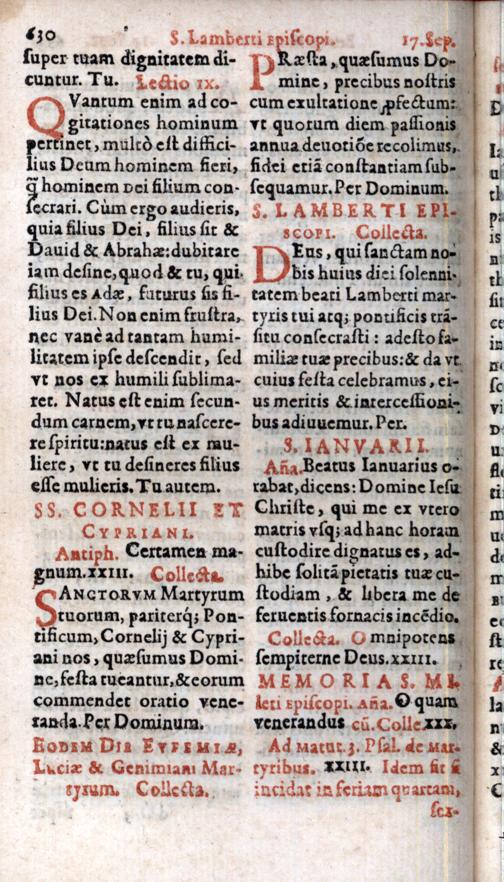 630
S. Lamberti Epiſcopi.
17. Sep.
ſuper tuam dignitatem di-
cuntur. Tu. Lectio ix.
QVantum enim ad co-
gitationes hominum
pertinet, multò eſt diffici-
lius Deum hominem fieri,
q̃ hominem Dei filium con-
ſecrari. Cùm ergo audieris,
quia filius Dei, filius ſit &
Dauid & Abrahæ: dubitare
iam deſine, quod & tu, qui
filius es Adæ, futurus ſis fi-
lius Dei. Non enim fruſtra,
nec vanè ad tantam humi-
litatem ipſe deſcendit, ſed
vt nos ex humili ſublima-
ret. Natus eſt enim ſecun-
dum carnem, vt tu naſcere-
re ſpiritu: natus eſt ex mu-
liere, vt tu deſineres filius
eſſe mulieris. Tu autem.
SS. CORNELII ET
CYPRIANI.
Antiph. Certamen ma-
gnum. xxiii. Collecta.
SANCTORVM Martyrum
tuorum, pariterq; Pon-
tificum, Cornelij & Cypri-
ani nos, quæſumus Domi-
ne, feſta tueantur, & eorum
commendet oratio vene-
randa. Per Dominum.
EODEM DIE EVFEMIÆ,
Luciæ & Geminiani Mar-
tyrum. Collecta.
PRæſta, quæſumus Do-
mine, precibus noſtris
cum exultatione ꝓfectum:
vt quorum diem paſſionis
annua deuotiõe recolimus,
fidei etiã conſtantiam ſub-
ſequamur. Per Dominum.
S. LAMBERTI EPI-
SCOPI. Collecta.
DEus, qui ſanctam no-
bis huius diei ſolenni-
tatem beati Lamberti mar-
tyris tui atq; pontificis trã-
ſitu conſecraſti: adeſto fa-
miliæ tuæ precibus: & da vt
cuius feſta celebramus, ei-
us meritis & interceſſioni-
bus adiuuemur. Per.
S. IANVARII.
Aña. Beatus Ianuarius o-
rabat, dicens: Domine Ieſu
Chriſte, qui me ex vtero
matris vſq; ad hanc horam
cuſtodire dignatus es, ad-
hibe ſolitã pietatis tuæ cu-
ſtodiam, & libera me de
feruentis fornacis incẽdio.
Collecta. Omnipotens
ſempiterne Deus. xxiii.
MEMORIA S. MI-
leti Epiſcopi. Aña. O quam
venerandus cũ. Colle. xxx.
Ad Matut. 3. Pſal. de Mar-
tyribus. XXIII. Idem ſit ſi
incidat in feriam quartam,
ſex-